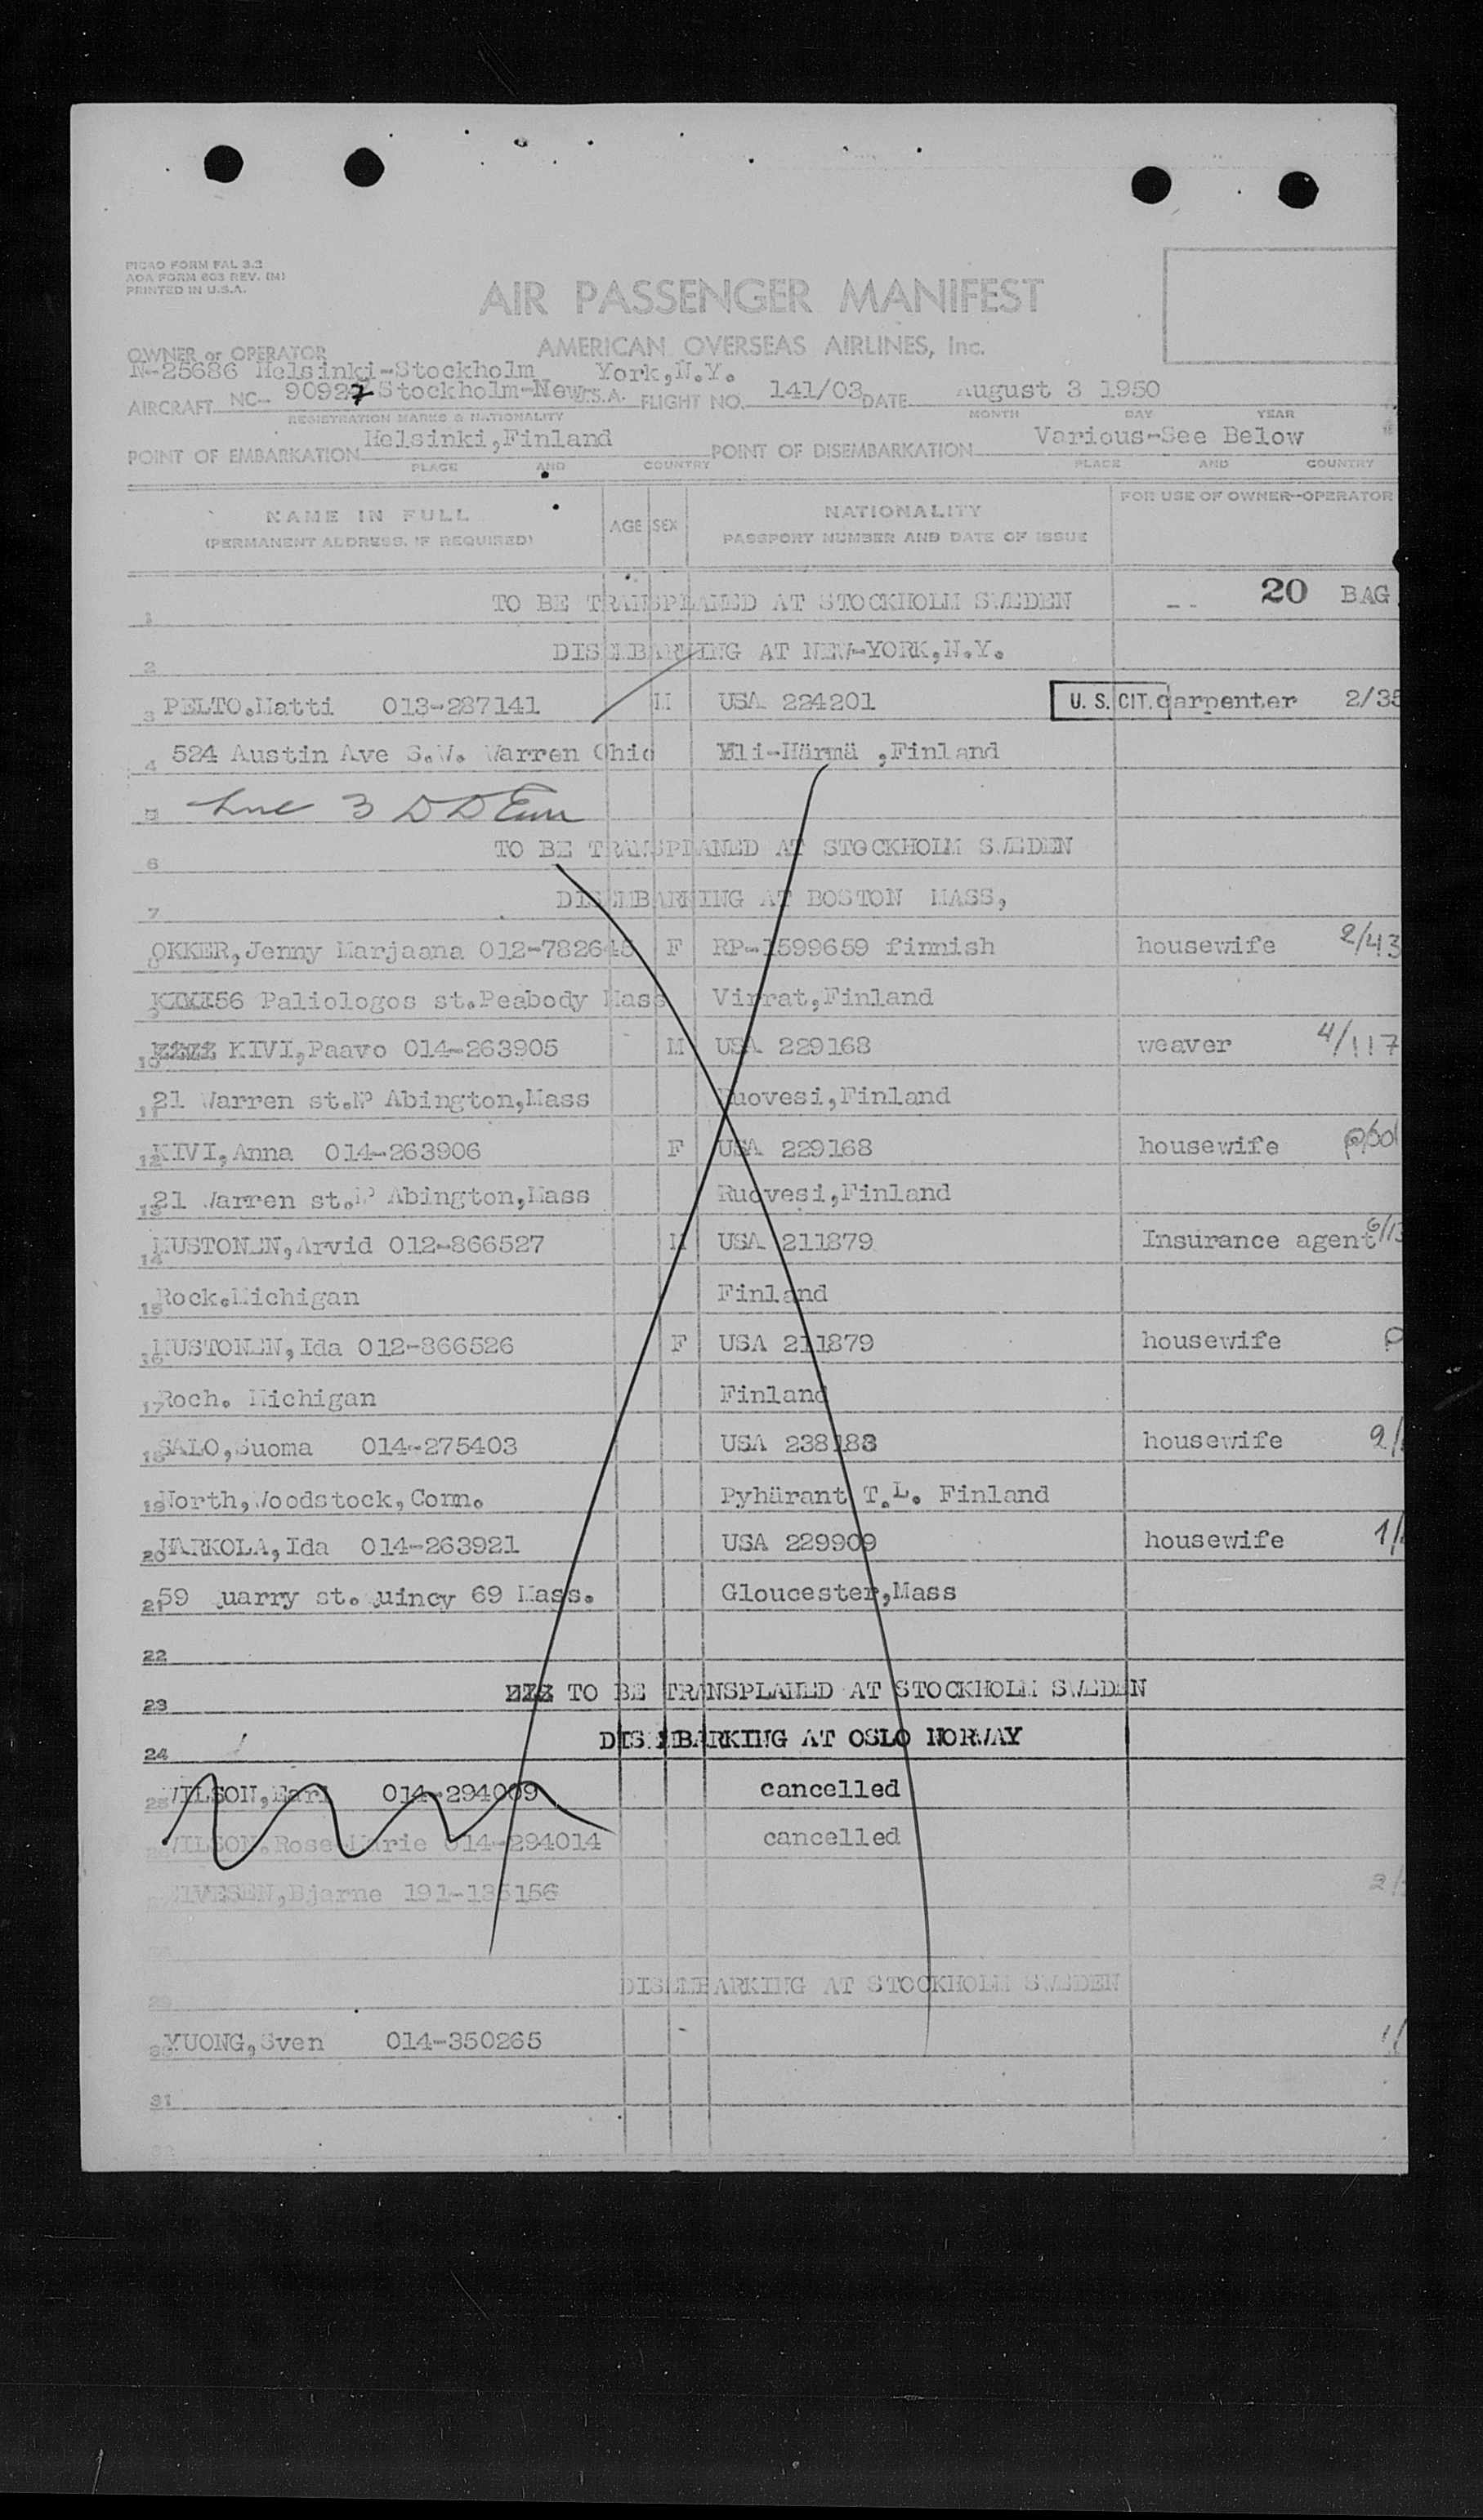 PICAO FORM FAL 3.2
AOA FORM 603 REV. (M)
PRINTED IN U.S.A.
AIR PASSENGER MANIFEST
AMERICAN OVERSEAS AIRLINES, Inc.
OWNER or OPERATOR
N-25686 Helsinki-Stockholm York,N.Y.
AIRCRAFT NC- 90927 Stockholm-New U.S.A. FLIGHT NO. 141/03 DATE August 3 1950
REGISTRATION MARKS & NATIONALITY MONTH DAY YEAR
POINT OF EMBARKATION Helsinki,Finland POINT OF DISEMBARKATION Various-See Below
PLACE AND COUNTRY PLACE AND COUNTRY
NAME IN FULL AGE SEX NATIONALITY FOR USE OF OWNER-OPERATOR
(PERMANENT ADDRESS, IF REQUIRED) PASSPORT NUMBER AND DATE OF ISSUE
1 TO BE TRANSPLANED AT STOCKHOLM SWEDEN -- 20 BAG
2 DISEMBARKING AT NEW-YORK,N.Y.
3 PELTO.Matti 013-287141 M USA 224201 U. S. CIT. carpenter 2/35
4 524 Austin Ave S.W. Warren Ohio Yli-Härmä ,Finland
5 Line 3
6 TO BE TRANSPLANED AT STOCKHOLM SWEDEN
7 DISEMBARKING AT BOSTON MASS,
OKKER,Jenny Marjaana 012-782645 F RP-1599659 finnish housewife 2/43
56 Paliologos st.Peabody Mass Virrat,Finland
10 KIVI,Paavo 014-263905 M USA 229168 weaver 4/117
11 21 Warren st.N° Abington,Mass Ruovesi,Finland
12 KIVI,Anna 014-263906 F USA 229168 housewife
13 21 Warren st.N° Abington,Mass Ruovesi,Finland
14 MUSTONEN,Arvid 012-866527 M USA 211879 Insurance agent 6/13
15 Rock.Michigan Finland
16 MUSTONEN,Ida 012-866526 F USA 211879 housewife
17 Roch. Michigan Finland
18 SALO,Suoma 014-275403 USA 238188 housewife 2/
19 North,Woodstock,Conn. Pyhärant T.L. Finland
20 HARKOLA,Ida 014-263921 USA 229909 housewife 1/
21 59 Quarry st. Quincy 69 Mass. Gloucester,Mass
22
23 TO BE TRANSPLANED AT STOCKHOLM SWEDEN
24 DISEMBARKING AT OSLO NORWAY
25 WILSON,Earl 014-294009 cancelled
WILSON,Rose Marie 014-294014 cancelled
Bjarne 191-135156 2/
29 DISEMBARKING AT STOCKHOLM SWEDEN
30 YUONG,Sven 014-350265 1/
31
32